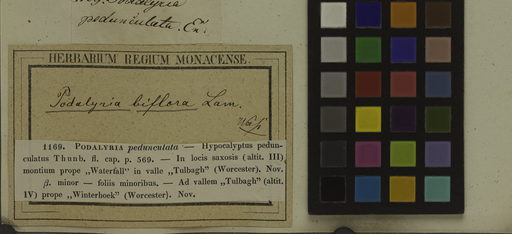 Podalyria
pedunculata. E.
HERBARIUM REGIUM MONACENSE.
Podalyria biflora Lam.
1169. PODALYRIA pedunculata — Hypocalyptus pedun-
culatus Thunb. fl. cap. p. 569. — In locis saxosis (altit. III)
montium prope „Waterfall" in valle „Tulbagh" (Worcester). Nov.
β. minor — foliis minoribus. — Ad vallem „Tulbagh" (altit.
IV) prope „Winterhoek" (Worcester). Nov.